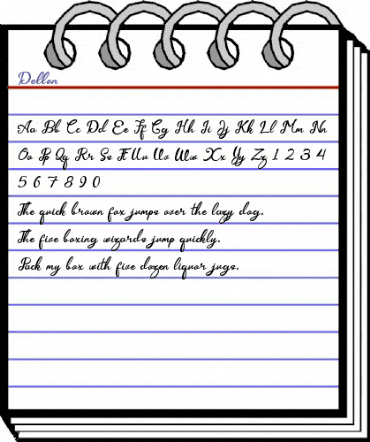 Dellon
Aa Bb Cc Dd Ee Ff Gg Hh Ii Jj Kk Ll Mm Nn
Oo Pp Qq Rr Ss Tt Uu Vv Ww Xx Yy Zz 1 2 3 4
5 6 7 8 9 0
The quick brown fox jumps over the lazy dog.
The five boxing wizards jump quickly.
Pack my box with five dozen liquor jugs.